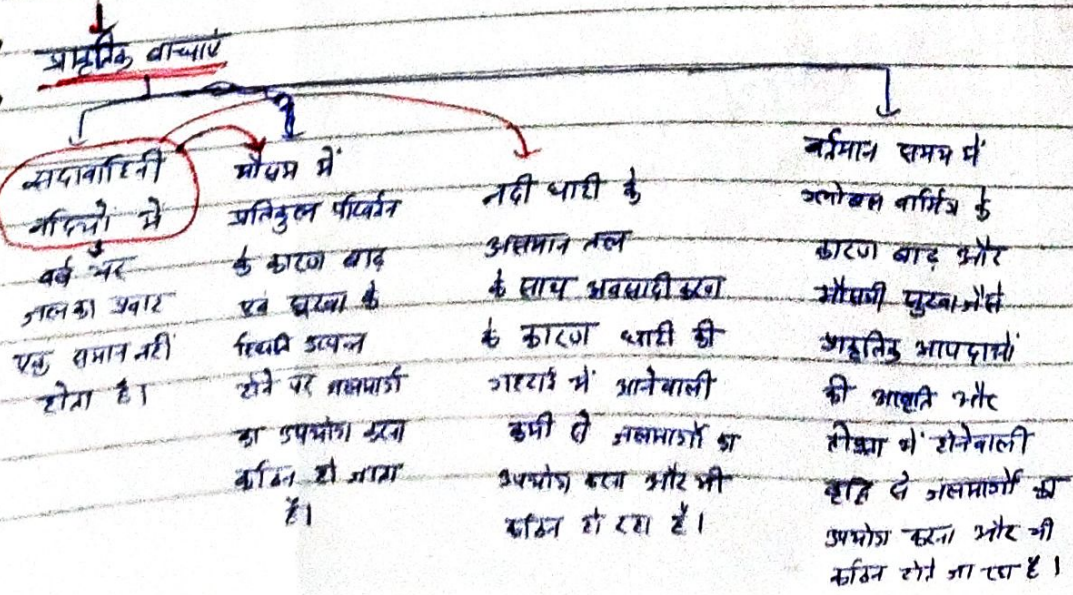 प्राकृतिक बाधाएं
सदावाहिनी
नदियों में
वर्ष भर
जल का प्रवाह
एक समान नहीं
होता है।
मौसम में
प्रतिकूल परिवर्तन
के कारण बाढ़
एवं सूखा के
स्थिति उत्पन्न
होने पर जलमार्ग
का उपयोग करना
कठिन हो जाता
है।
नदी घाटी के
असमान तल
के साथ अवसादीकरण
के कारण घाटी की
गहराई में आनेवाली
कमी से जलमार्गों का
उपयोग करना और भी
कठिन हो रहा है।
वर्तमान समय में
ग्लोबल वार्मिंग के
कारण बाढ़ और
मौसमी सूखा जैसे
प्राकृतिक आपदाओं
की आवृति और
तीव्रता में होनेवाली
वृद्धि से जलमार्गों का
उपयोग करना और भी
कठिन होते जा रहा है।